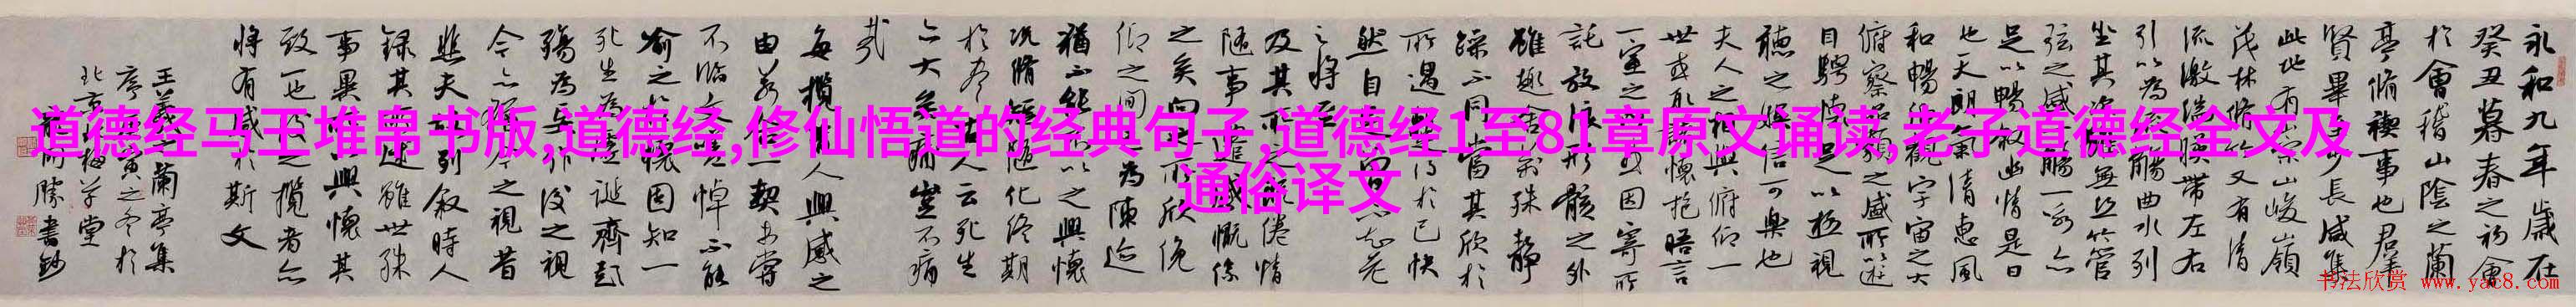 永和九年歲在
癸丑暮春之初會
於會稽山陰之蘭
亭脩禊事也羣
賢畢至少長咸集
此地有崇山峻嶺
茂林脩竹又有清
流激湍暎帶左右
引以為流觴曲水列
坐其次雖無絲竹管
弦之盛一觴一詠亦
足以暢叙幽情是日
也天朗氣清惠風
和暢仰觀宇宙之大
俯察品類之盛所以遊
目騁懷足以極視
聽之娛信可樂也
夫人之相與俯仰一
世或取諸懷抱晤言
一室之內或因寄所
託放浪形骸之外
雖趣舍萬殊靜
躁不同當其欣於
所遇蹔得於己快
然自足不知老
之將至
及其所之既倦情
隨事遷感慨係
之矣向之所欣俛
仰之間以為陳迹
猶不能不以之興懷
況脩短隨化終期
於盡古人云死生
亦大矣豈不痛
哉
每攬昔人興感之
由若合一契未嘗
不臨文嗟悼不能
喻之於懷固知一
死生為虛誕齊彭
殤為妄作後之視
今亦猶今之視昔
悲夫故列叙時人
錄其所述雖世殊
事異所以興懷其
致一也後之攬者亦
將有感於斯文
王羲之蘭亭集
序寅之冬於
北京草堂
勝書鈔
道德经马王堆帛书版,道德经,修仙悟道的经典句子,道德经1至81章原文诵读,老子道德经全文及
通俗译文
书法欣赏 www.yac8.com